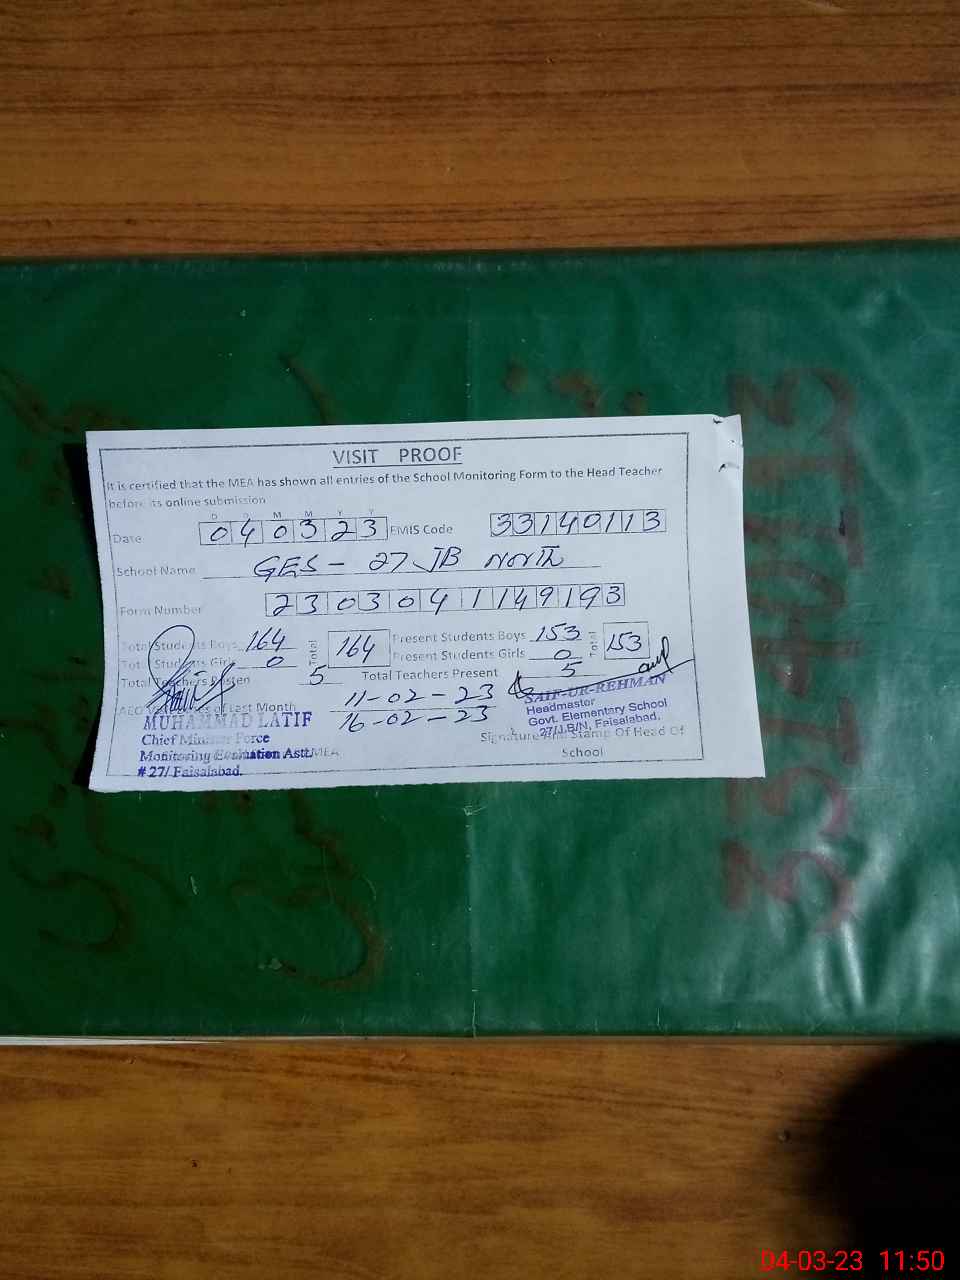 VISIT PROOF
It is certified that the MEA has shown all entries of the School Monitoring Form to the Head Teacher
before its online submission
D D M M Y Y
Date 040323 EMIS Code 33140113
School Name GES - 27 JB North
Form Number 230304 1149193
Total Students Boys 164 Total 164 Present Students Boys 153 Total 153
Total Students Girls 0 Present Students Girls 0
Total Teachers Posten 5 Total Teachers Present 5
11-02-23
of Last Month 16-02-23
MUHAMMAD LATIF
Chief Minister Force
Monitoring Evaluation Astt. MEA
# 27/ Faisalabad.
SAIF-UR-REHMAN
Headmaster
Govt. Elementary School
27/J.B/N, Faisalabad.
Signature And Stamp Of Head Of
School
33140113
04-03-23 11:50